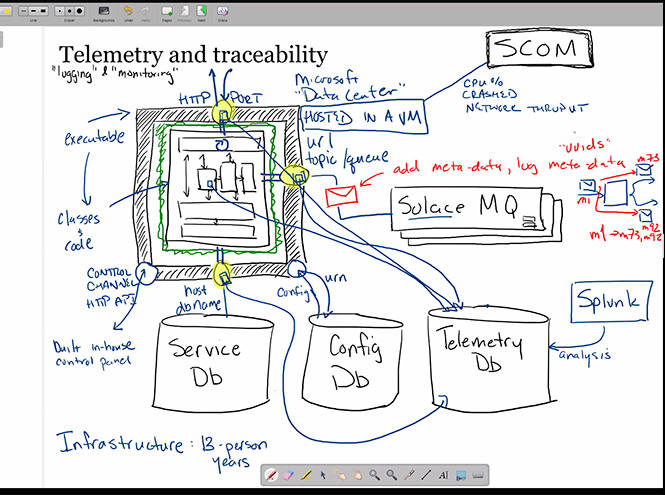 Telemetry and traceability
"logging" & "monitoring"
SCOM
CPU%
CRASHED
NETWORK THRUPUT
Microsoft
"Data Center"
HOSTED IN A VM
HTTP PORT
executable
classes
&
code
url
topic/queue
add meta-data, log meta-data
"uuids"
m73
m1
m92
m1→m73, m92
Solace MQ
CONTROL
CHANNEL
HTTP API
host
dbname
urn
Config
Built in-house
control panel
Service
Db
Config
Db
Telemetry
Db
Splunk
analysis
Infrastructure: 13-person
years